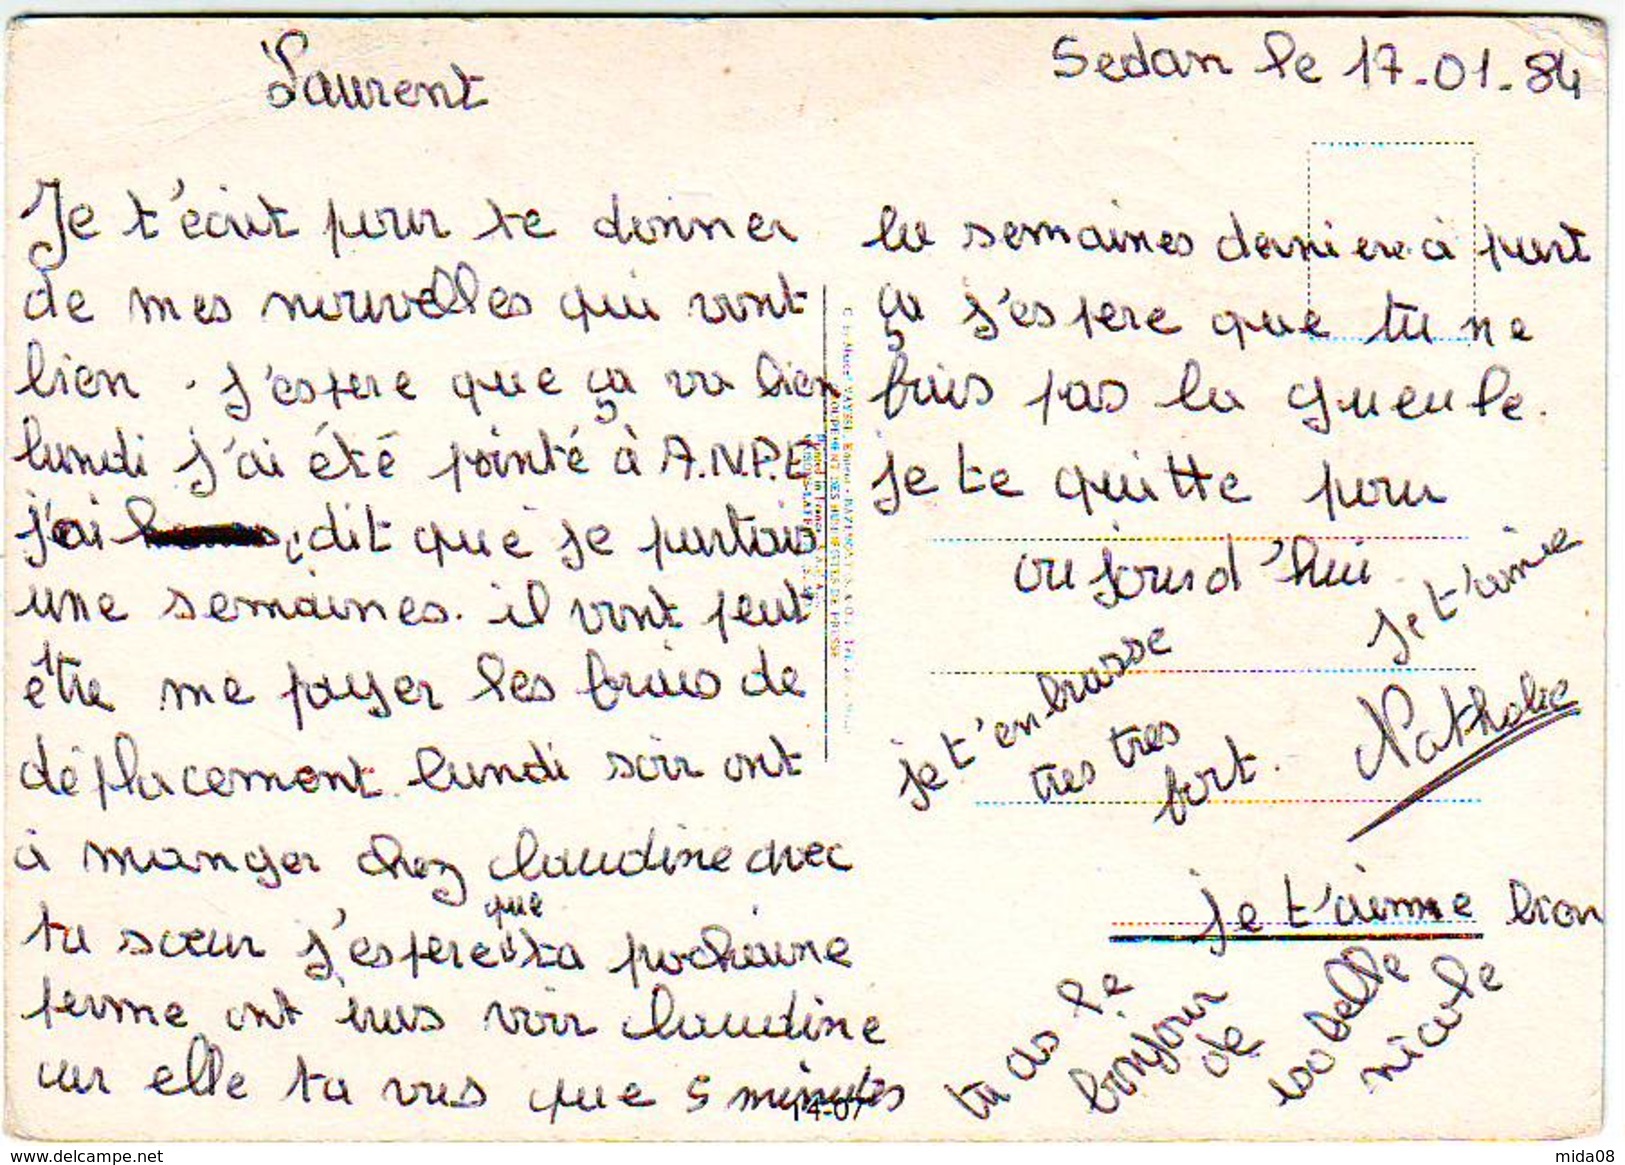 Laurent
Sedan le 17-01-84
Je t'écrit pour te donner
de mes nouvelles qui vont
bien. J'espere que ça va bien
lundi j'ai été pointé à A.N.P.E
j'ai dit que je partais
une semaines. il vont peut
être me payer les frais de
déplacement. lundi soir ont
à manger chez claudine avec
ta sœur j'espere que ta pochaine
perme ont iras voir claudine
car elle ta vus que 5 minutes
la semaines derniere. à part
ça j'espere que tu ne
fais pas la gueule.
je te quitte pour
au jours d'hui.
je t'aime
je t'enbrasse
tres tres
fort.
Nathalie
je t'aienme bien
tu as le
bonjour
de
isabelle
nicole
14-07
mida08